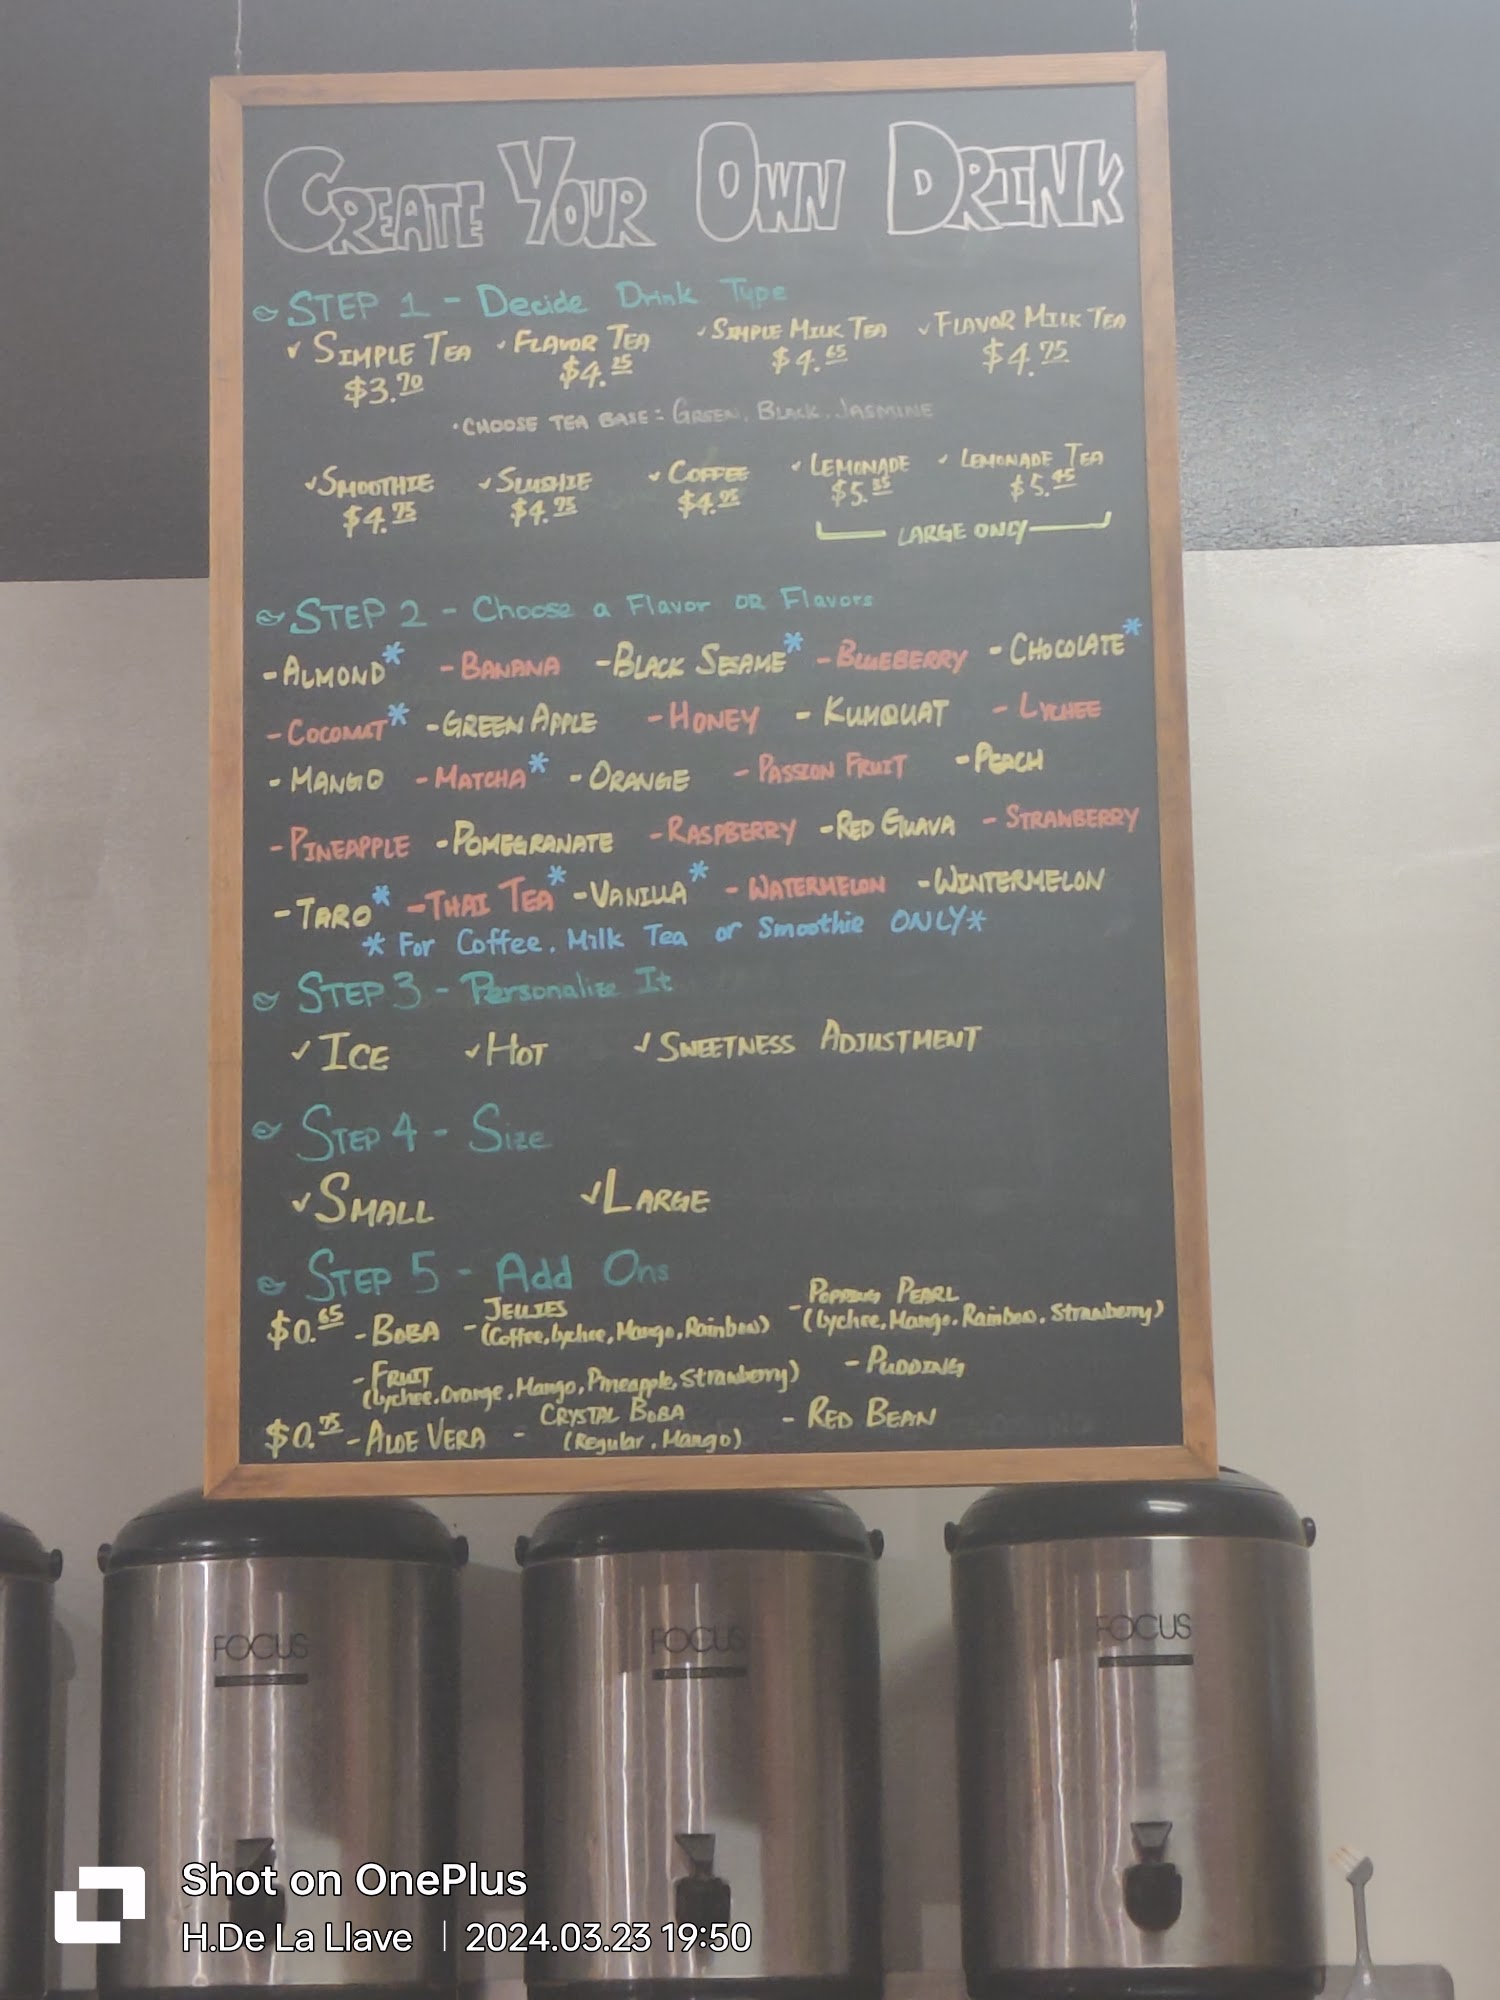 CREATE YOUR OWN DRINK
STEP 1 - Decide Drink Type
✓ SIMPLE TEA ✓ FLAVOR TEA ✓ SIMPLE MILK TEA ✓ FLAVOR MILK TEA
$3.70 $4.25 $4.65 $4.75
• CHOOSE TEA BASE: GREEN, BLACK, JASMINE
✓ SMOOTHIE ✓ SLUSHIE ✓ COFFEE ✓ LEMONADE ✓ LEMONADE TEA
$4.75 $4.75 $4.95 $5.35 $5.45
LARGE ONLY
STEP 2 - Choose a Flavor OR Flavors
- ALMOND* - BANANA - BLACK SESAME* - BLUEBERRY - CHOCOLATE*
- COCONUT* - GREEN APPLE - HONEY - KUMQUAT - LYCHEE
- MANGO - MATCHA* - ORANGE - PASSION FRUIT - PEACH
- PINEAPPLE - POMEGRANATE - RASPBERRY - RED GUAVA - STRAWBERRY
- TARO* - THAI TEA* - VANILLA* - WATERMELON - WINTERMELON
* For Coffee, Milk Tea or Smoothie ONLY*
STEP 3 - Personalize It
✓ ICE ✓ HOT ✓ SWEETNESS ADJUSTMENT
STEP 4 - Size
✓ SMALL ✓ LARGE
STEP 5 - Add Ons
$0.65 - BOBA - JELLIES - POPPING PEARL
(Coffee, Lychee, Mango, Rainbow) (Lychee, Mango, Rainbow, Strawberry)
- FRUIT - PUDDING
(Lychee, Orange, Mango, Pineapple, Strawberry)
$0.75 - ALOE VERA - CRYSTAL BOBA - RED BEAN
(Regular, Mango)
FOCUS FOCUS FOCUS
Shot on OnePlus
H.De La Llave | 2024.03.23 19:50